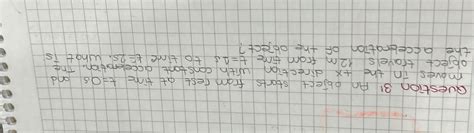 Question 3: An object starts from rest at time t=0s and
moves in the +x direction with constant acceleration. The
object travels 12m from time t=1s to time t=2s. What is
the acceleration of the object?